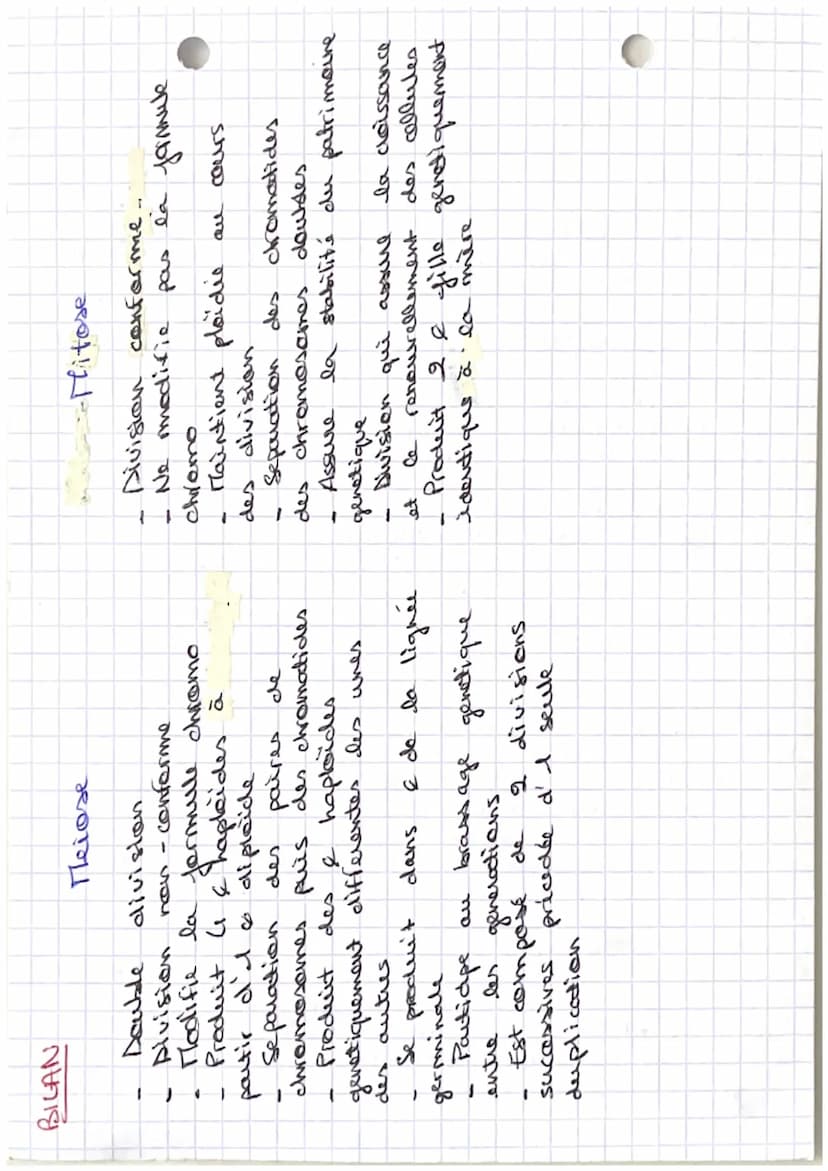 BILAN
Meiose
- Double division
- Division non-conforme
- Modifie la formule chromo
- Produit 4 ¢ haploïdes à
partir d'1 ¢ diploïde
- Separation des paires de
chromosomes puis des chromatides
- Produit des ¢ haploïdes
genetiquement differentes les unes
des autres
- Se produit dans ¢ de la lignée
germinale
- Participe au brassage genetique
entre les generations
- Est composé de 2 divisions
successives précedée d'1 seule
duplication
Mitose
- Division conforme
- Ne modifie pas la formule
chromo
- Maintient ploïdie au cours
des division
- Separation des chromatides
des chromosomes doubles
- Assure la stabilité du patrimoine
genetique
- Division qui assure la croissance
et le renouvellement des cellules
- Produit 2 ¢ fille genetiquement
identique à la mère